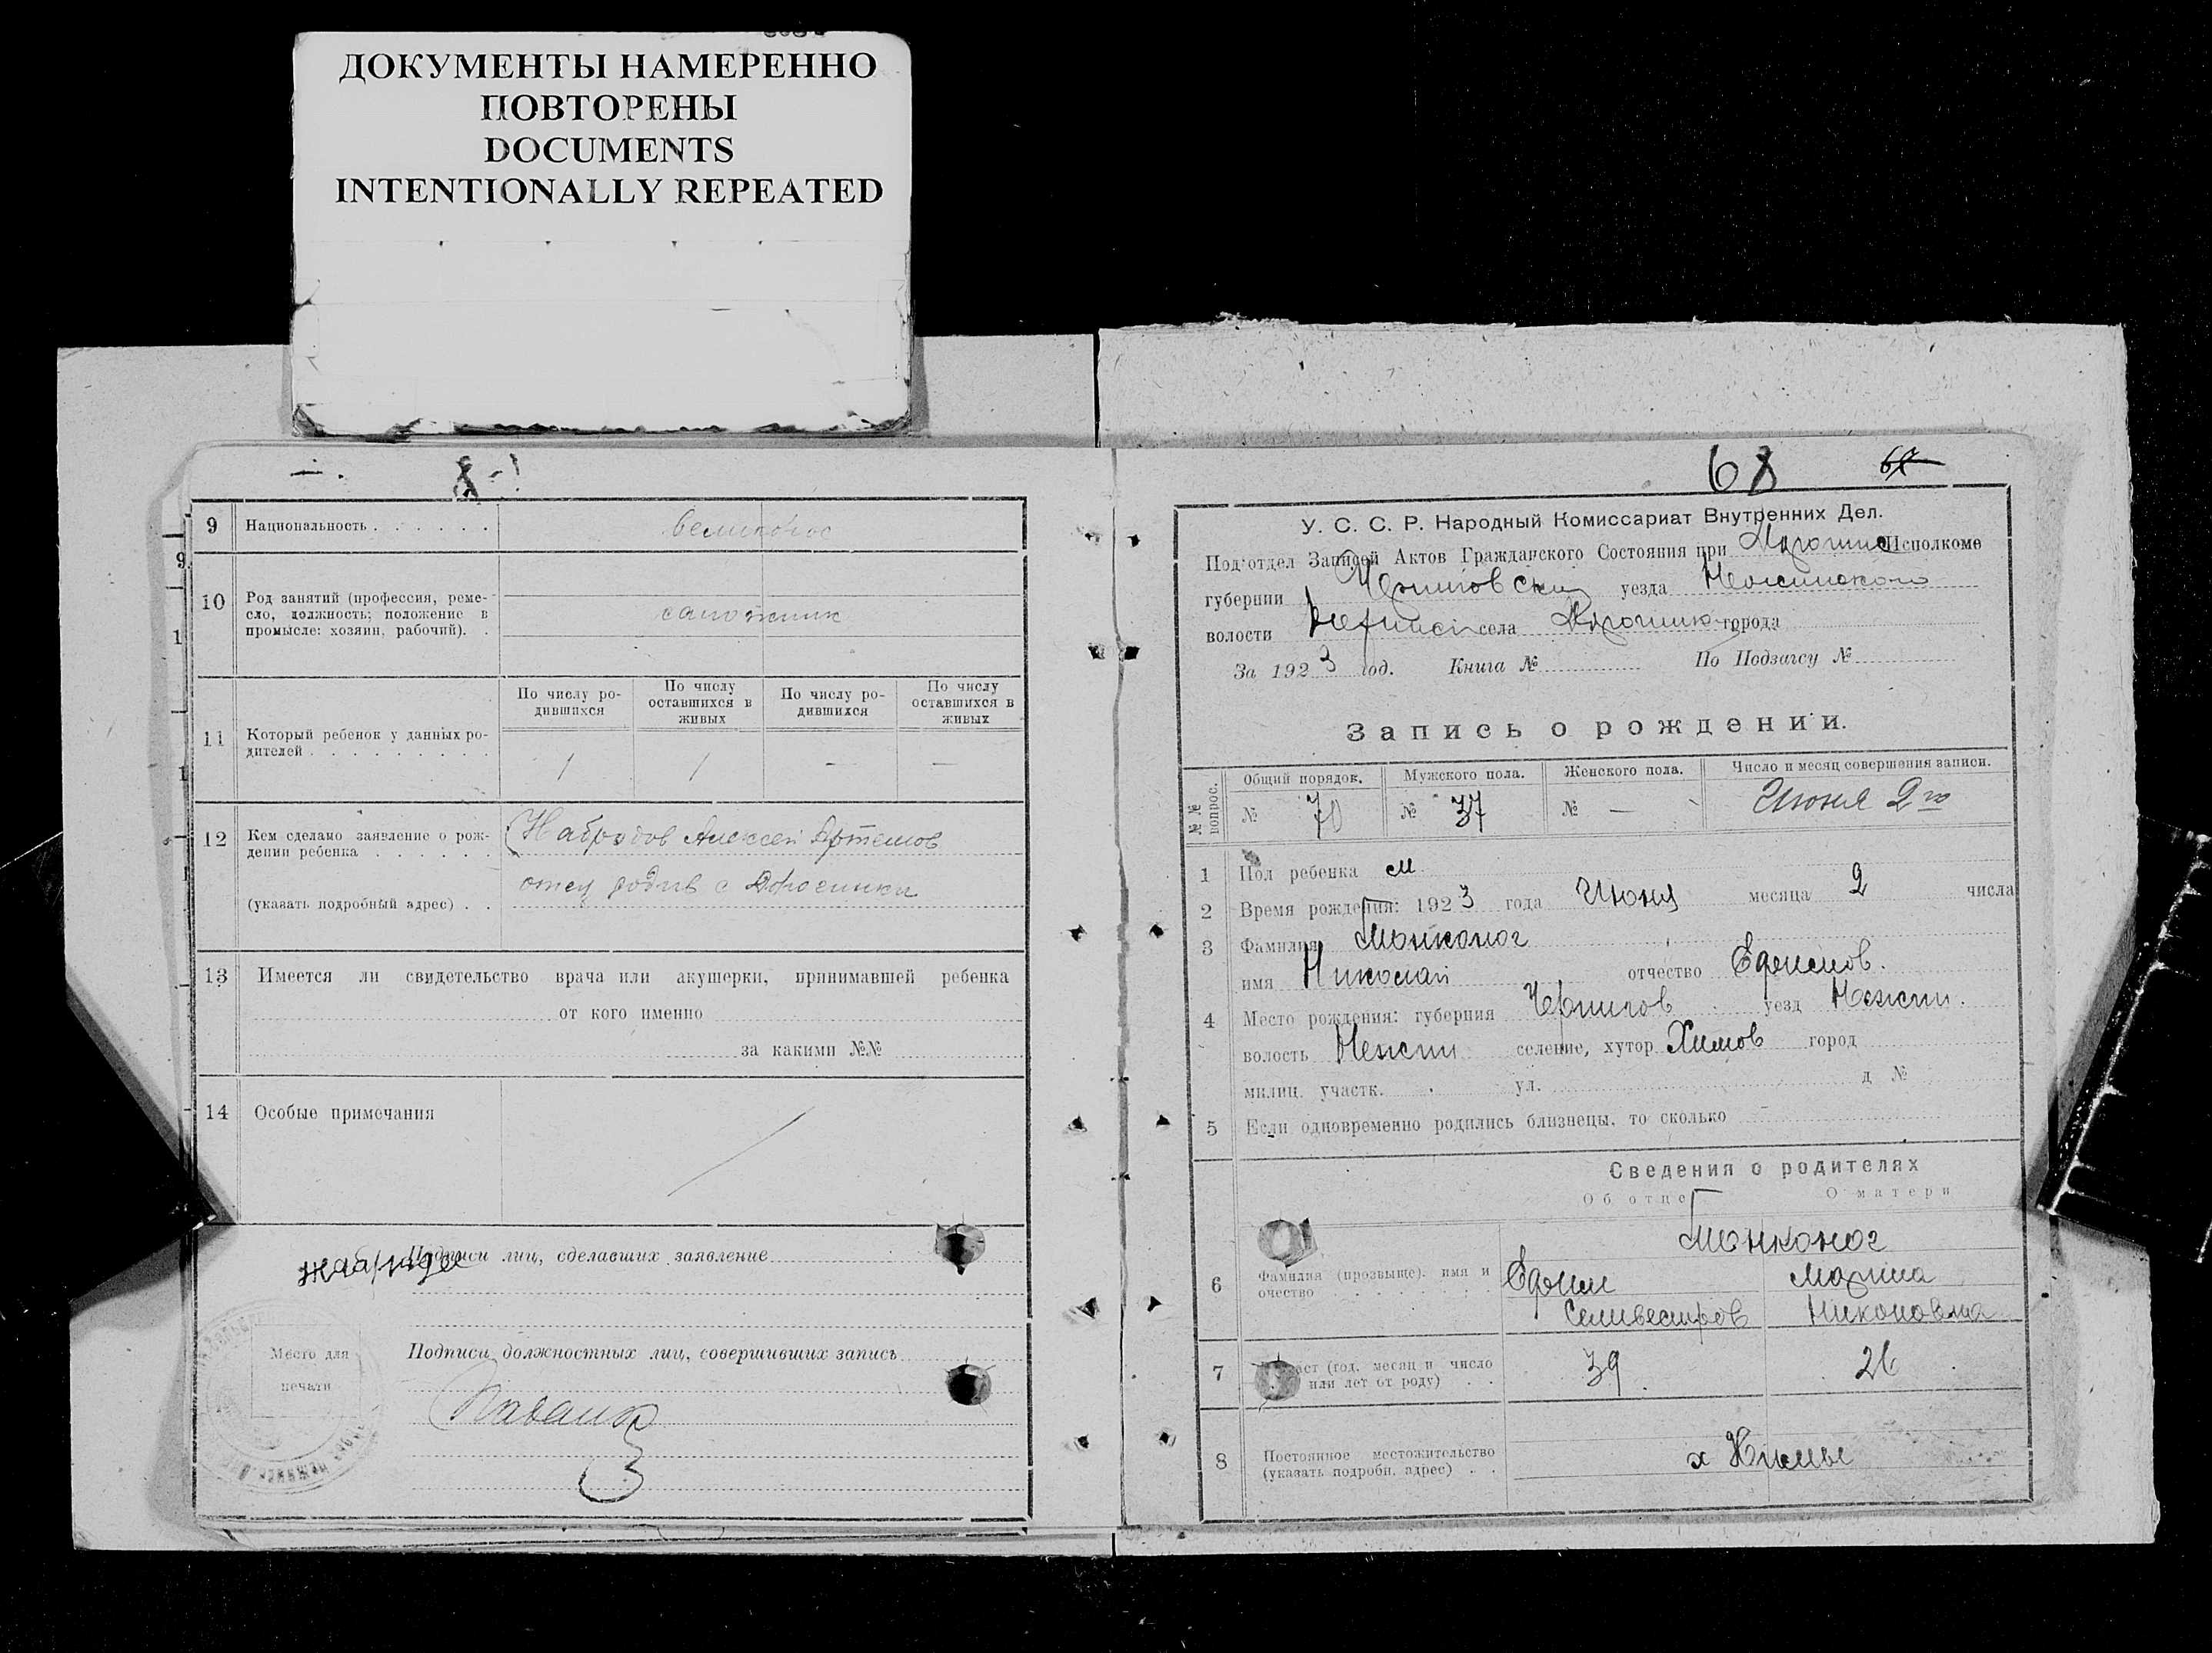 ДОКУМЕНТЫ НАМЕРЕННО
ПОВТОРЕНЫ
DOCUMENTS
INTENTIONALLY REPEATED
9 Национальность великорос
10 Род занятий (профессия, реме-
сло, должность; положение в
промысле: хозяин, рабочий).
сапожник
11 Который ребенок у данных ро-
дителей
По числу ро-
дившихся
По числу
оставшихся в
живых
По числу ро-
дившихся
По числу
оставшихся в
живых
1 1 — —
12 Кем сделано заявление о рож-
дении ребенка
(указать подробный адрес)
Набродов Алексей Артемов
отец
13 Имеется ли свидетельство врача или акушерки, принимавшей ребенка
от кого именно
за какими №№
14 Особые примечания
Подписи лиц, сделавших заявление
Место для
печати
Подписи должностных лиц, совершивших запись
68 67
У. С. С. Р. Народный Комиссариат Внутренних Дел.
Под'отдел Записей Актов Гражданского Состояния при Исполкоме
губернии Черниговский уезда Нежинского
волости села города
За 1923 год. Книга № По Подзагсу №
Запись о рождении.
№№ вопрос.
Общий порядок. Мужского пола. Женского пола. Число и месяц совершения записи.
№ 70 № 37 № — Июня 2го
1 Пол ребенка м
2 Время рождения: 1923 года Июня месяца 2 числа
3 Фамилия Тонконог
имя Николай отчество Ефимов.
4 Место рождения: губерния Чернигов уезд Нежин.
волость Нежин селение, хутор Химов город
милиц. участк. ул. д №
5 Если одновременно родились близнецы, то сколько –
Сведения о родителях
Об отце О матери
Тонконог
6 Фамилия (прозвище), имя и
очество
Ефим Марина
Селивестров Никоновна
7 Возраст (год, месяц и число
или лет от роду)
39. 26
8 Постоянное местожительство
(указать подробн. адрес)
х Химы